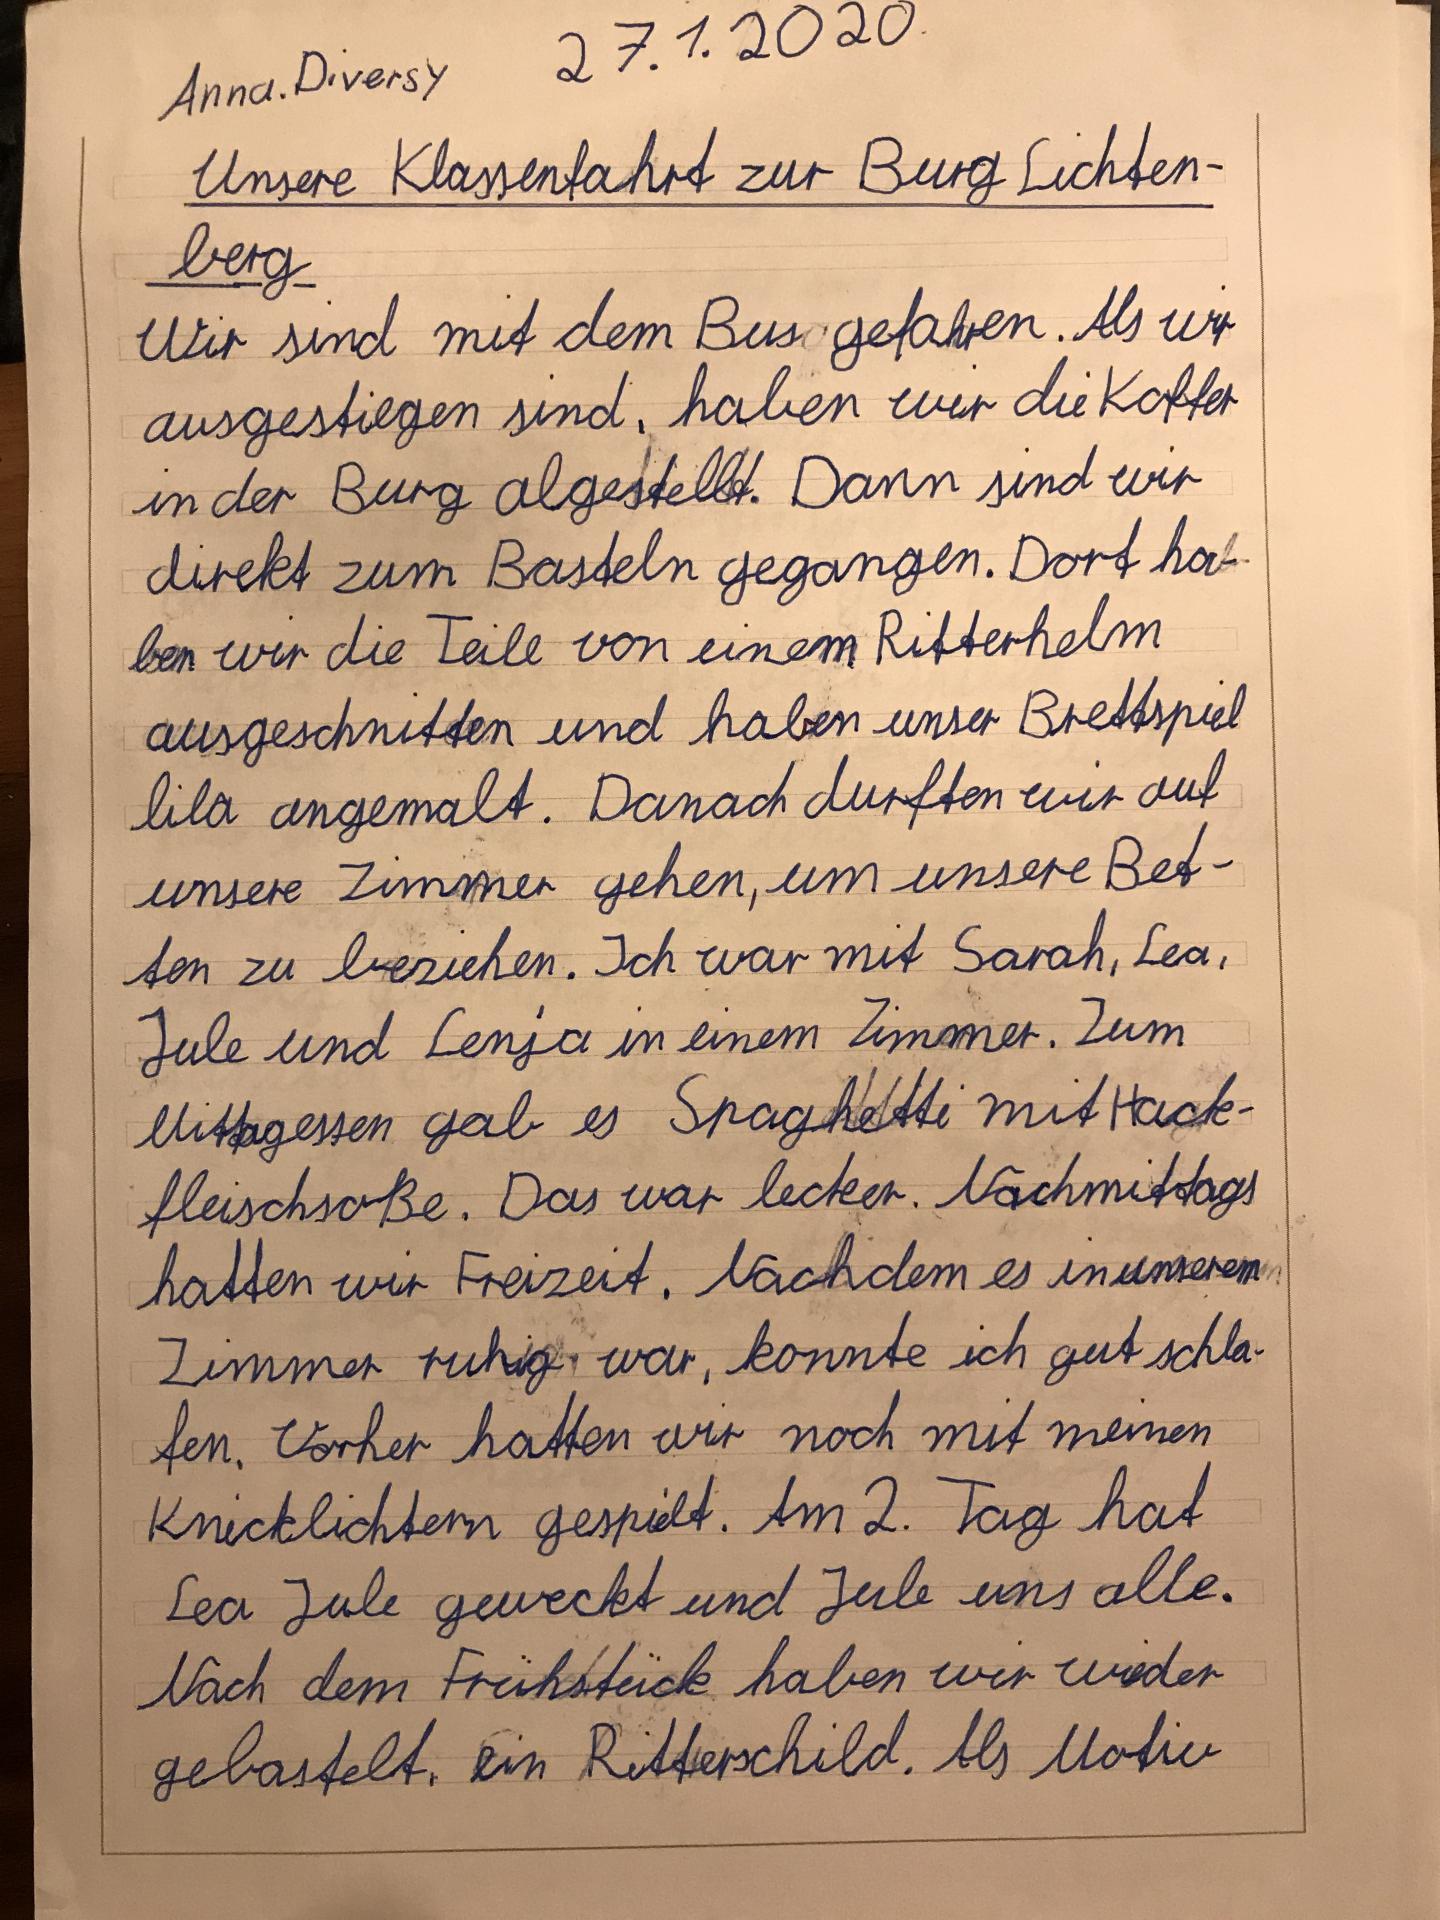 Anna.Diversy 27.1.2020
Unsere Klassenfahrt zur Burg Lichten-
berg
Wir sind mit dem Bus gefahren. Als wir
ausgestiegen sind, haben wir die Koffer
in der Burg abgestellt. Dann sind wir
direkt zum Basteln gegangen. Dort ha-
ben wir die Teile von einem Ritterhelm
ausgeschnitten und haben unser Brettspiel
lila angemalt. Danach durften wir auf
unsere Zimmer gehen, um unsere Bet-
ten zu beziehen. Ich war mit Sarah, Lea,
Jule und Lenja in einem Zimmer. Zum
Mittagessen gab es Spaghetti mit Hack-
fleischsoße. Das war lecker. Nachmittags
hatten wir Freizeit. Nachdem es in unserem
Zimmer ruhig war, konnte ich gut schla-
fen. Vorher hatten wir noch mit meinen
Knicklichtern gespielt. Am 2. Tag hat
Lea Jule geweckt und Jule uns alle.
Nach dem Frühstück haben wir wieder
gebastelt, ein Ritterschild. Als Motiv